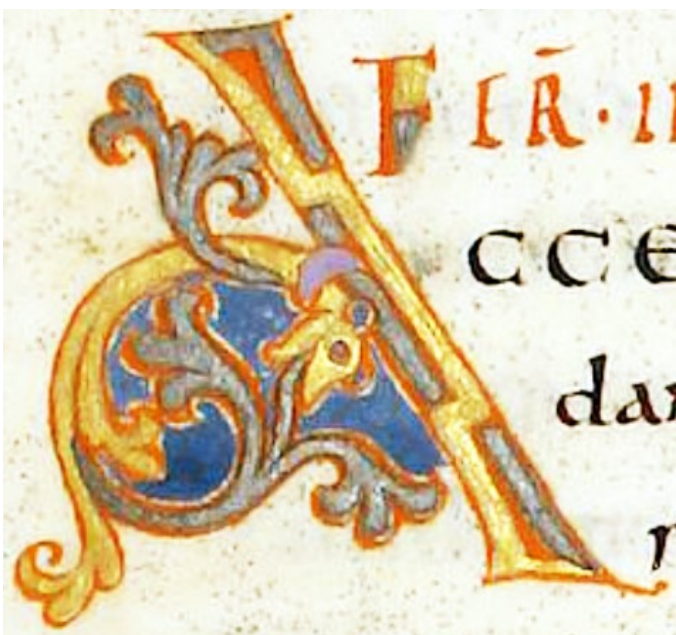 FER̄·I
ACCE
da